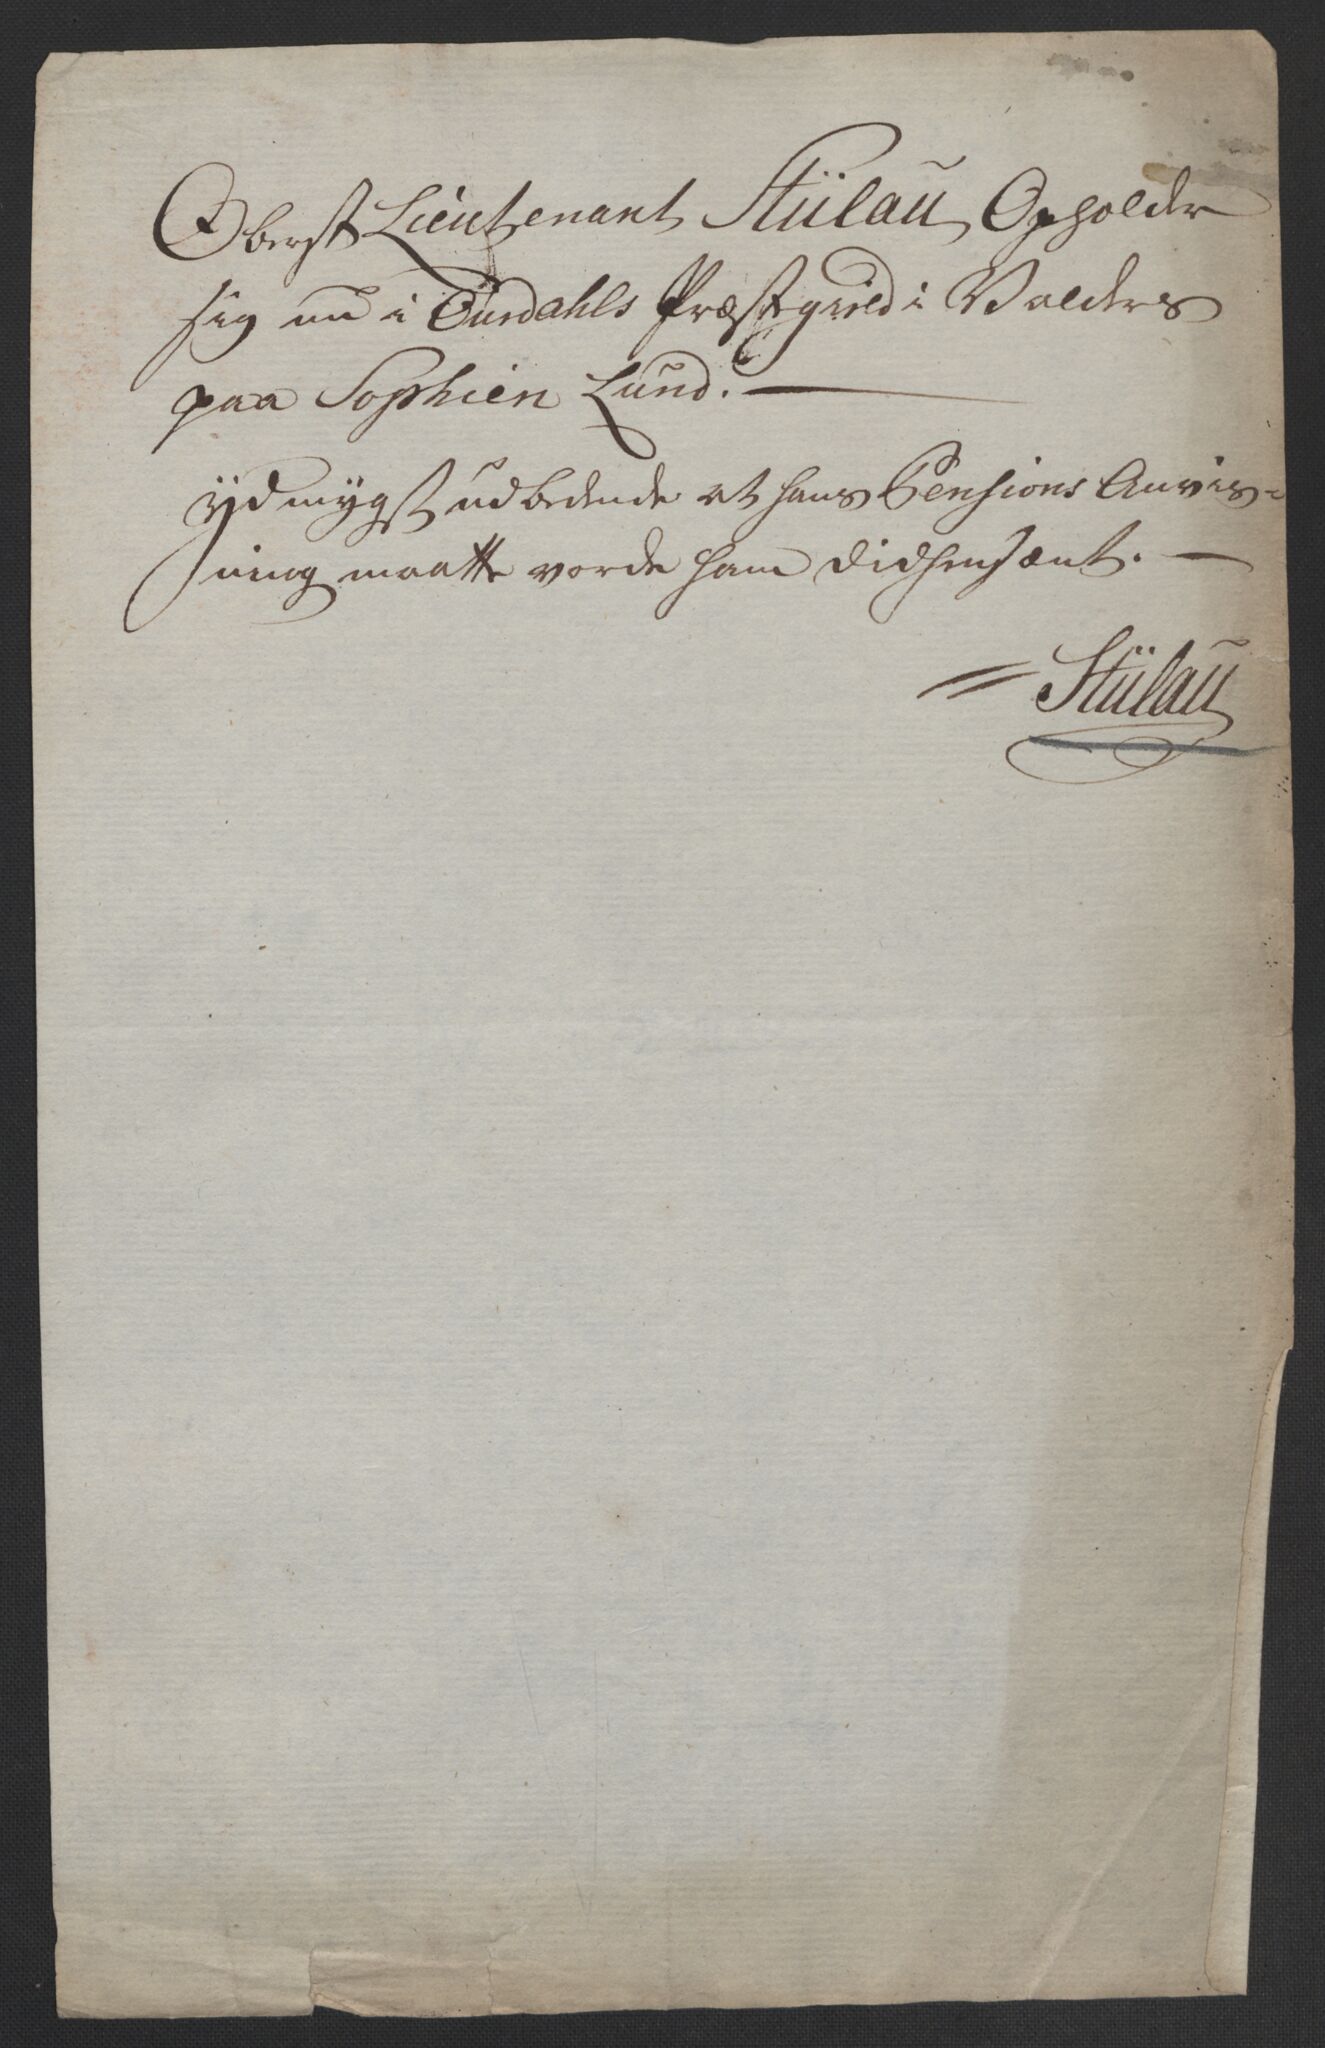 Oberst Lieutenant Stülau Opholder
sig nu i Ourdahls Præstegield i Valders
paa Sophien Lund.
ydmygst udbedende at hans Pensions Anvis-
ning maatte vorde ham didhensænt.
Stülau